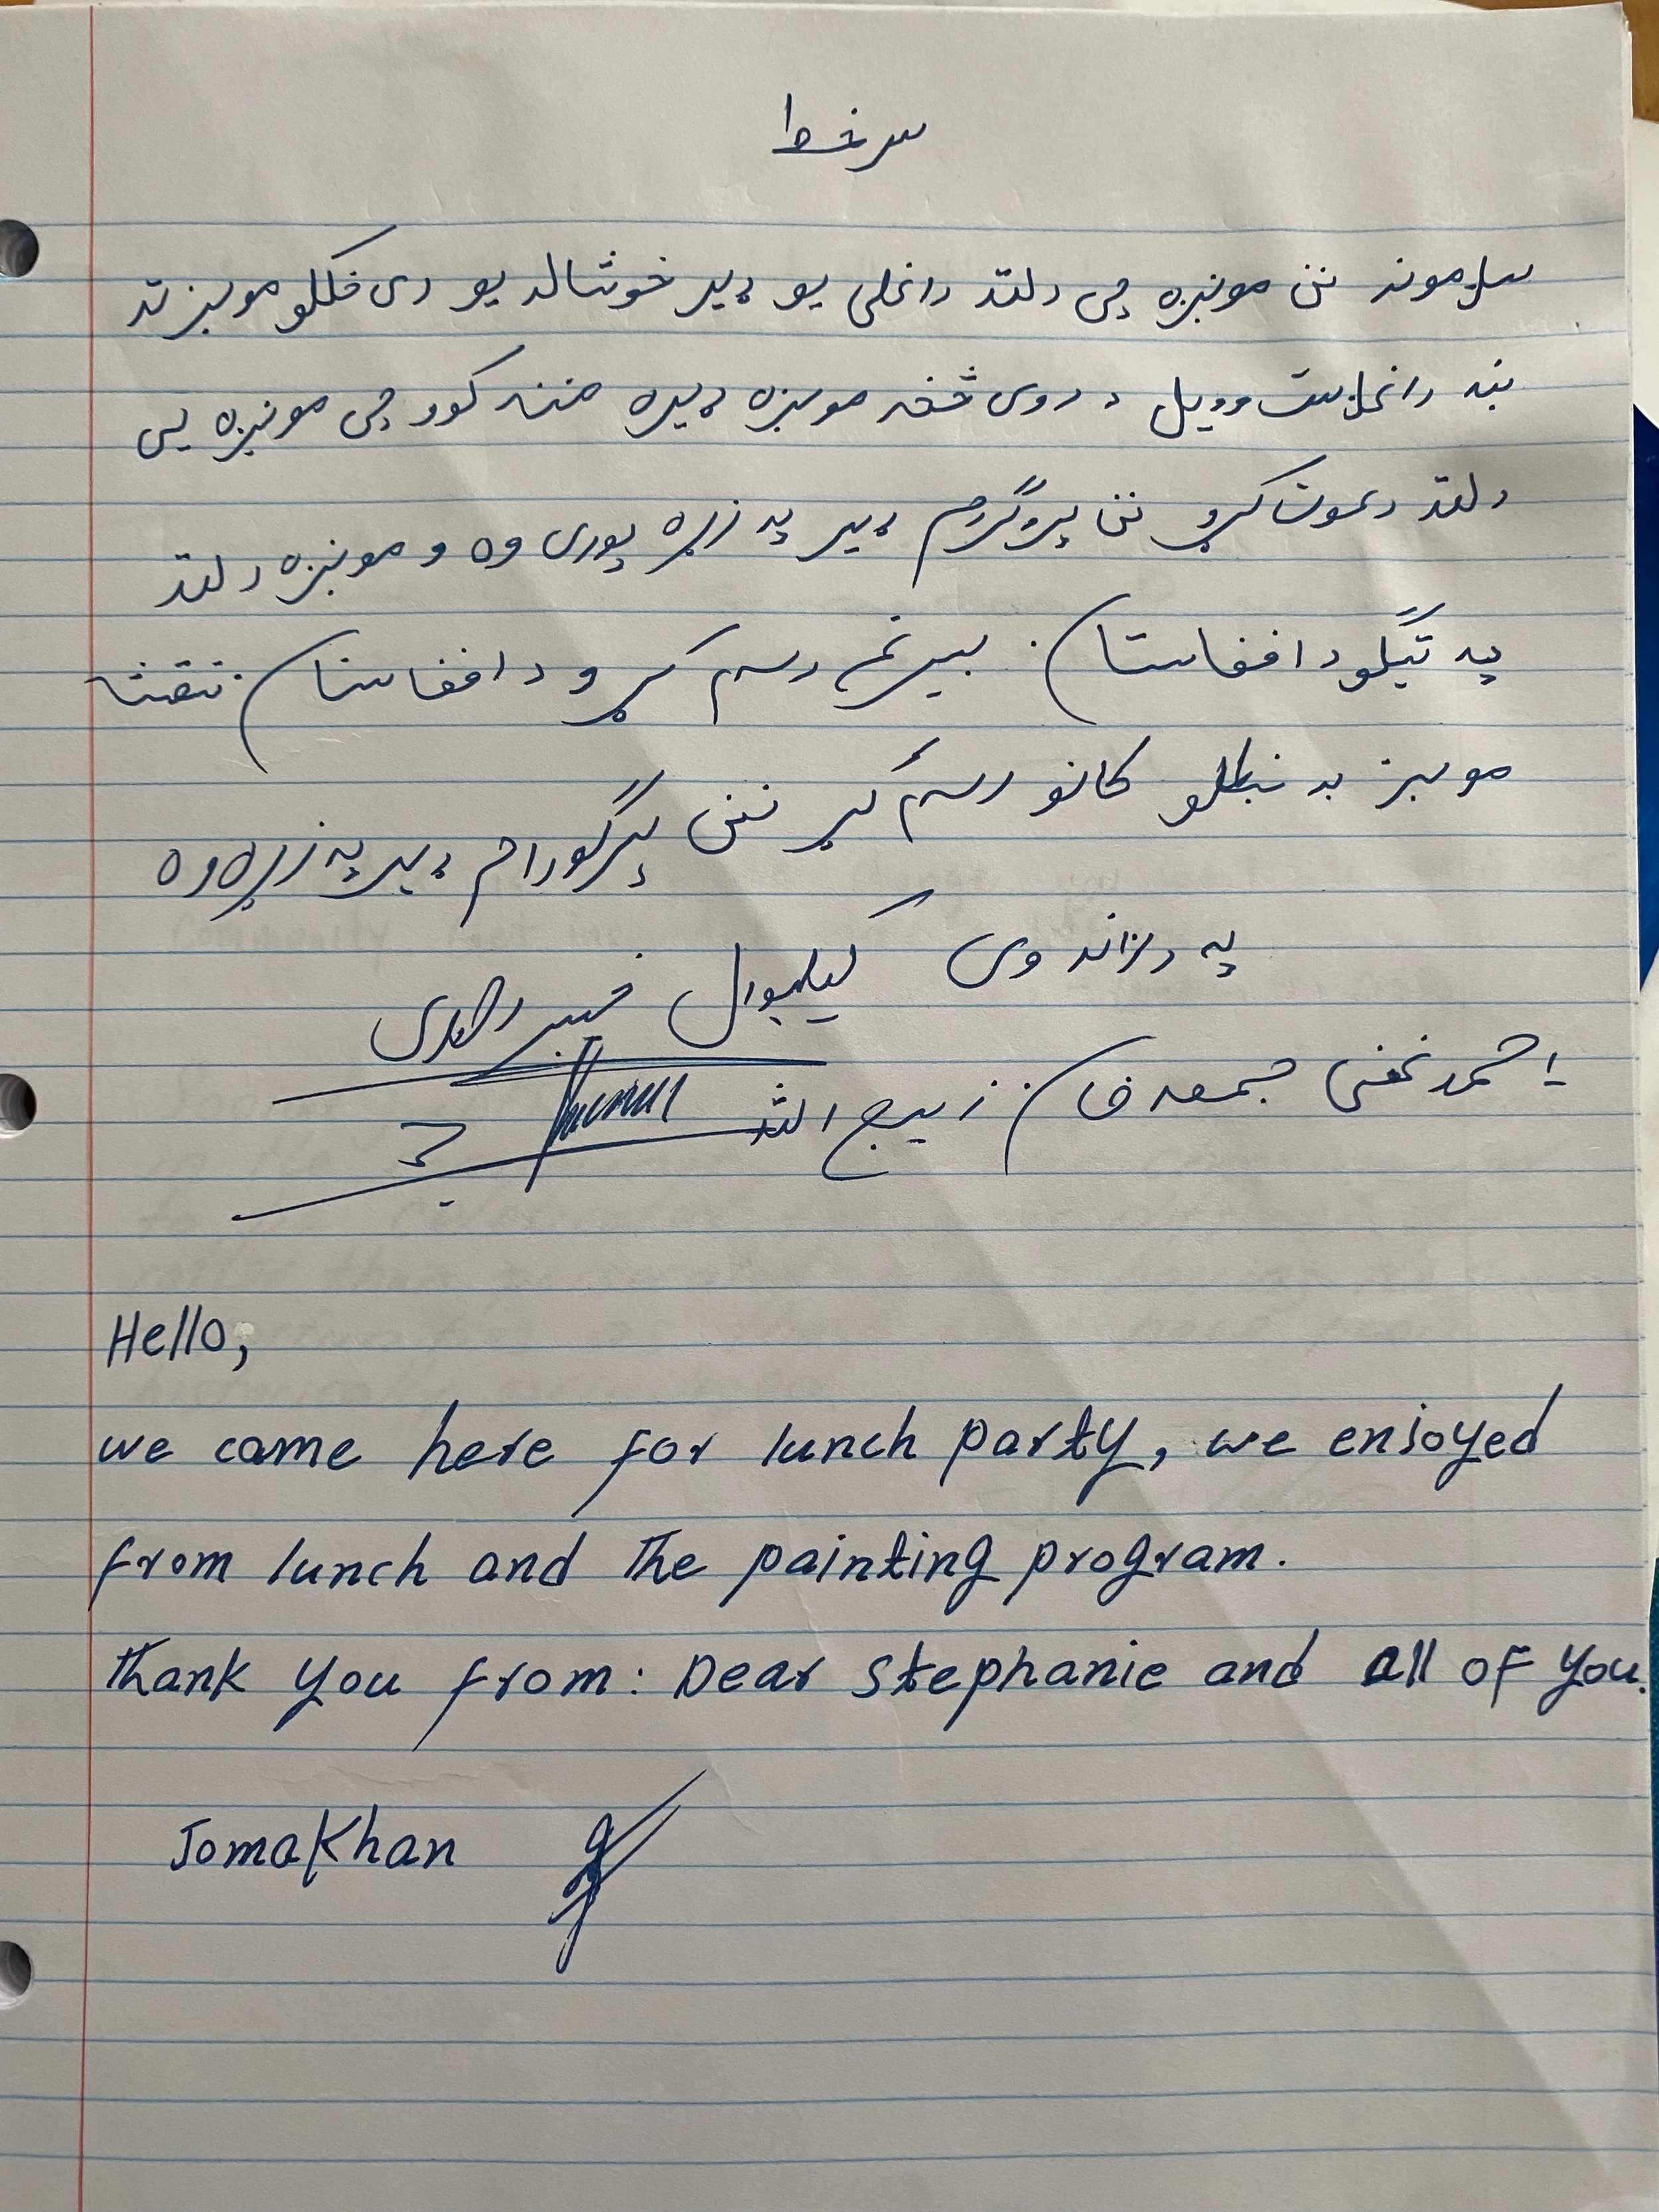 سرخط
سلامونه نن مونبزه چی دلته راغلی یو ډیر خوشاله یو دی خلکلو مونبز ته
ښه راغلاست وویل د دوی څخه مونبزه ډیره مننه کوو چی مونبزه یی
دلته دعوت کړو نن پروگرم ډیر په زړه پوری وه و مونبزه دلته
په تیگلو د افغانستان بیرغ رسم کړو د افغانستان نقشا
مونبز په کانو رسم کړ نن پرگورام ډیر په زړه وه
په درناوی
احمد غنی جمعه خان زبیح الله
Hello,
we came here for lunch party, we enjoyed
from lunch and the painting program.
Thank you from: Dear Stephanie and all of you.
JomaKhan